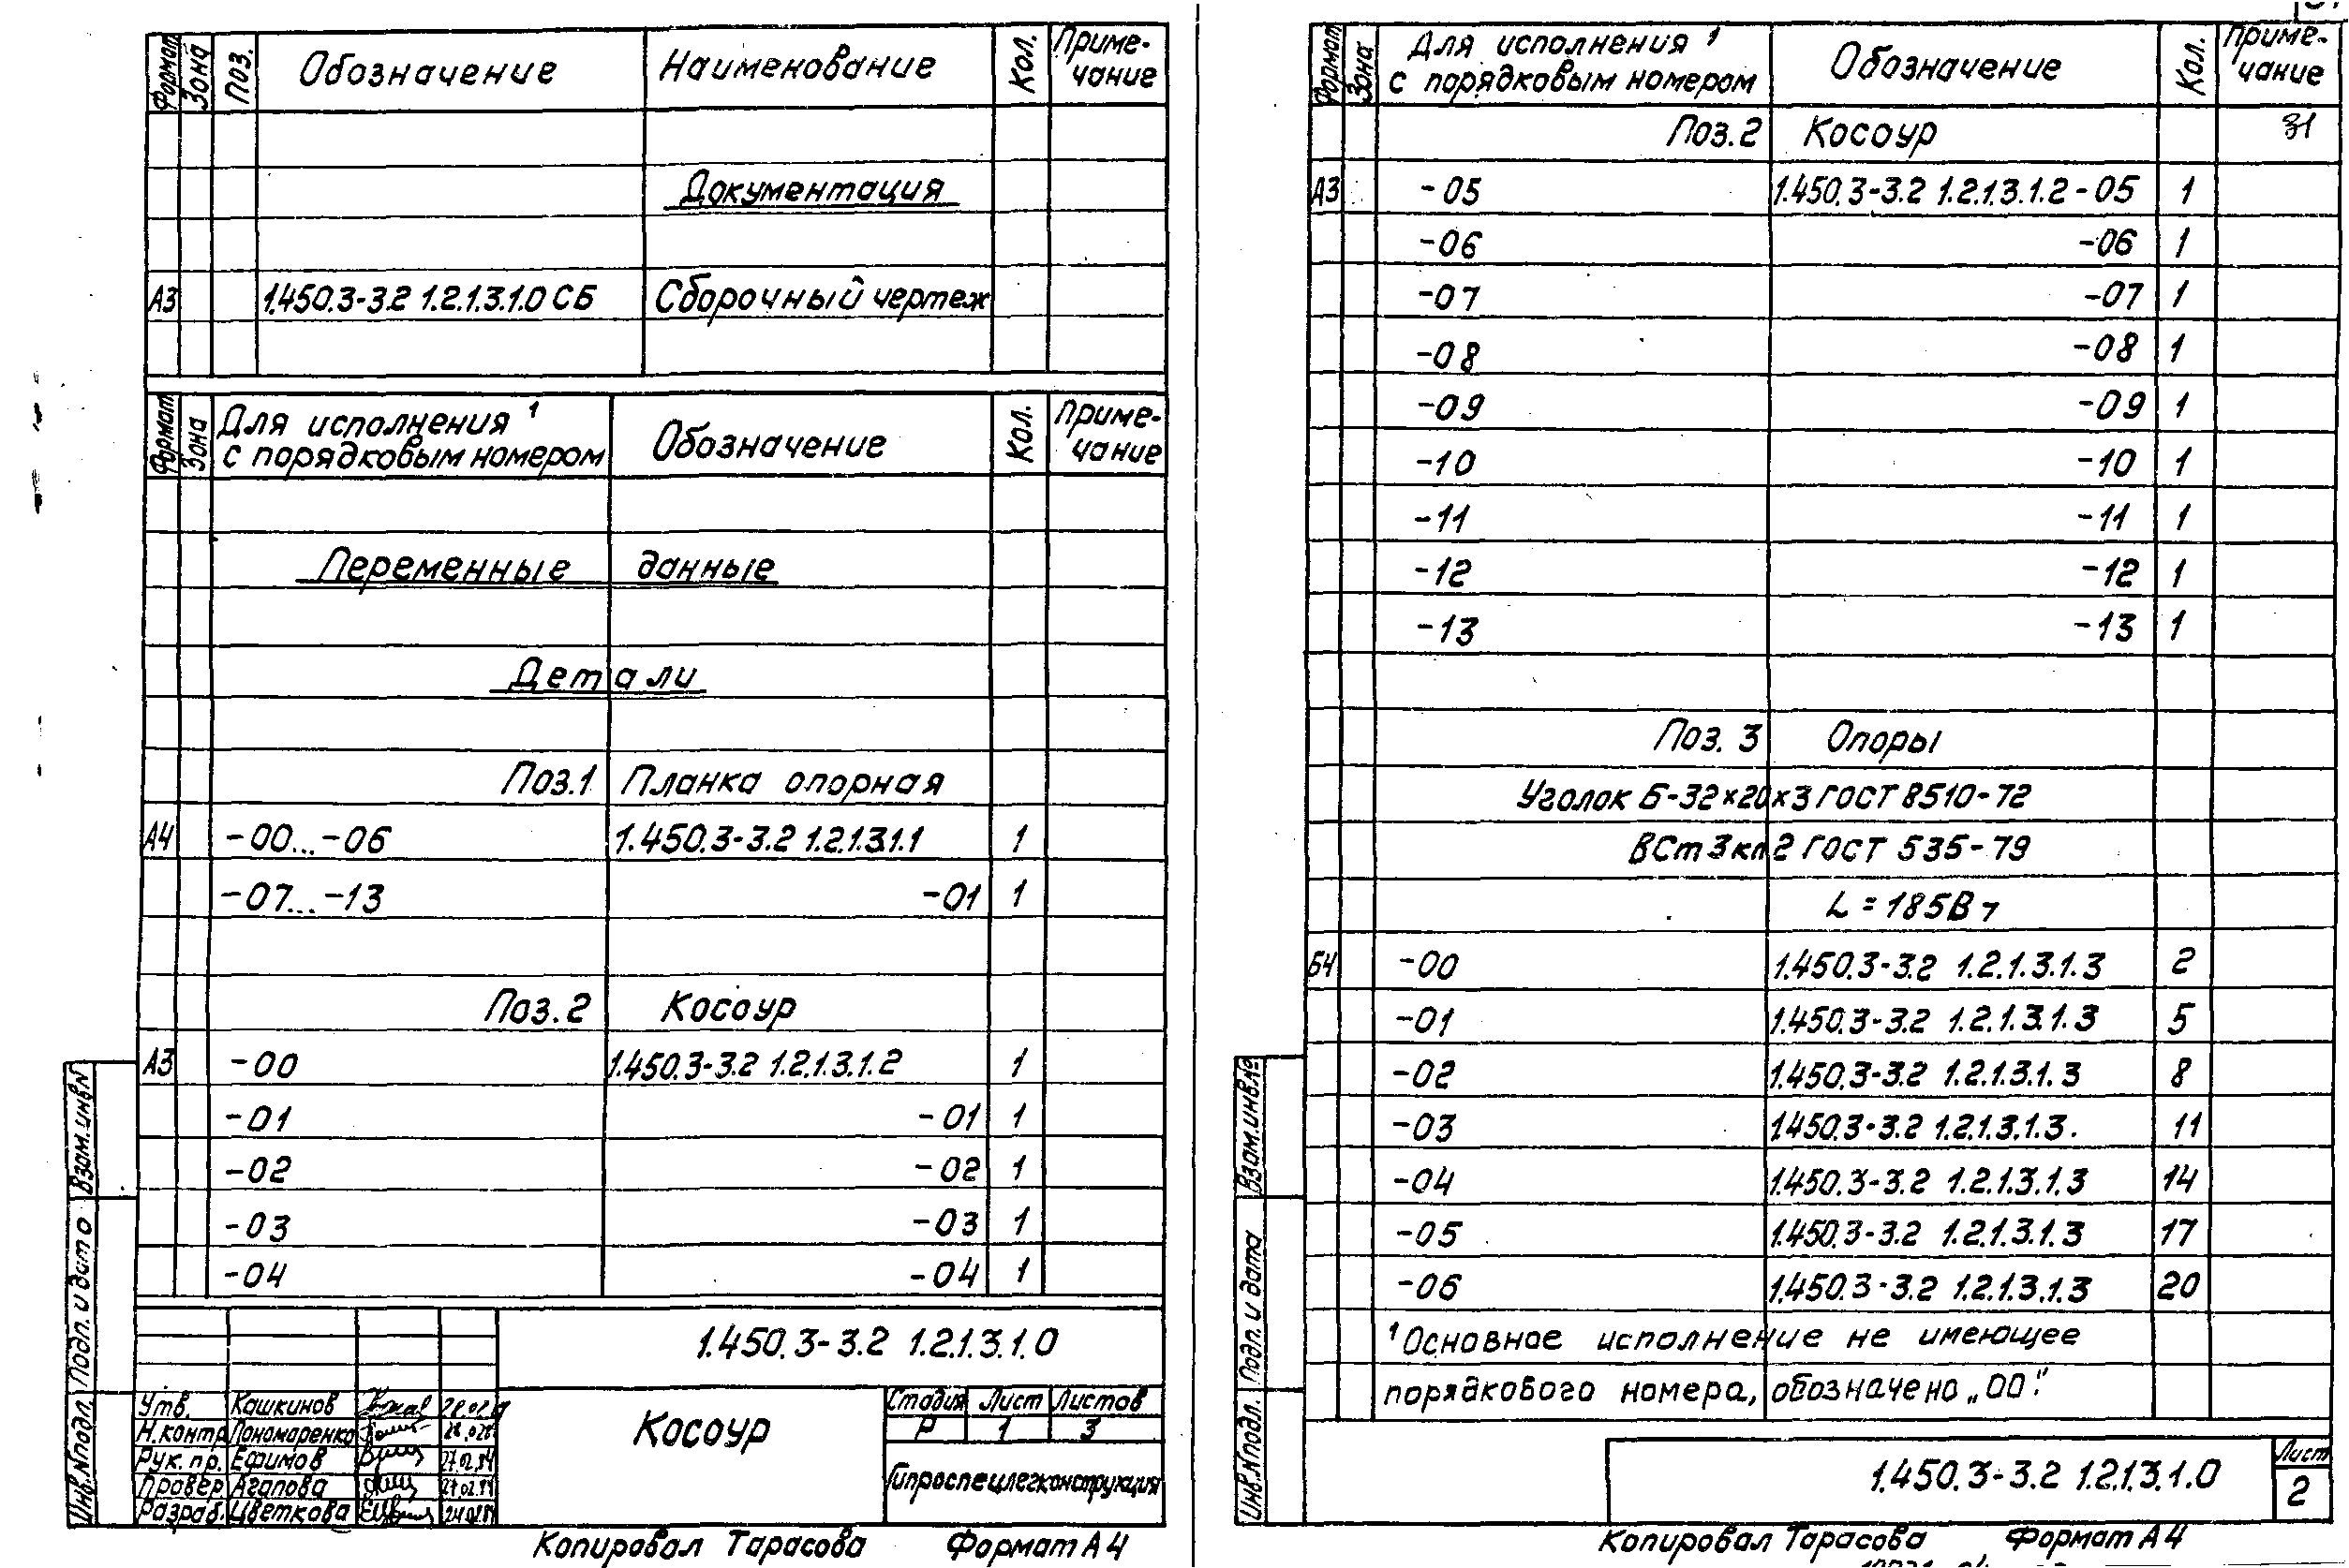 Формат Зона Поз. Обозначение Наименование Кол. Приме-
чание
Документация
А3 1.450.3-3.2 1.2.1.3.1.0 СБ Сборочный чертеж
Формат Зона Для исполнения ¹ Обозначение Кол. Приме-
с порядковым номером чание
Переменные данные
Детали
Поз.1 Планка опорная
А4 -00...-06 1.450.3-3.2 1.2.1.3.1.1 1
-07...-13 -01 1
Поз.2 Косоур
А3 -00 1.450.3-3.2 1.2.1.3.1.2 1
-01 -01 1
-02 -02 1
-03 -03 1
-04 -04 1
Взам.инв.№
Подп. и дата
Инв.№подл.
1.450.3-3.2 1.2.1.3.1.0
Утв. Кашкинов
Н.контр. Пономаренко
Рук. пр. Ефимов 27.02.84
Провер. Агапова 27.02.84
Разраб. Цветкова
Косоур
Стадия Лист Листов
Р 1 3
Гипроспецлегконструкция
Копировал Тарасова Формат А4
Формат Зона Для исполнения ¹ Обозначение Кол. Приме-
с порядковым номером чание
Поз.2 Косоур 31
А3 -05 1.450.3-3.2 1.2.1.3.1.2-05 1
-06 -06 1
-07 -07 1
-08 -08 1
-09 -09 1
-10 -10 1
-11 -11 1
-12 -12 1
-13 -13 1
Поз. 3 Опоры
Уголок Б-32×20×3 ГОСТ 8510-72
ВСт3кп2 ГОСТ 535-79
Б4 -00 1.450.3-3.2 1.2.1.3.1.3 2
-01 1.450.3-3.2 1.2.1.3.1.3 5
-02 1.450.3-3.2 1.2.1.3.1.3 8
-03 1.450.3-3.2 1.2.1.3.1.3. 11
-04 1.450.3-3.2 1.2.1.3.1.3 14
-05 1.450.3-3.2 1.2.1.3.1.3 17
-06 1.450.3-3.2 1.2.1.3.1.3 20
¹Основное исполнение не имеющее
порядкового номера, обозначено „00".
Взам.инв.№
Подп. и дата
Инв.№подл.
1.450.3-3.2 1.2.1.3.1.0
Лист
2
Копировал Тарасова Формат А4